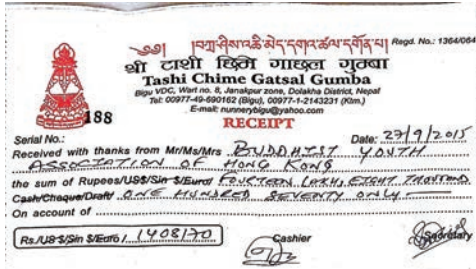 ༄༅། །བཀྲ་ཤིས་འཆི་མེད་དགའ་ཚལ་དགོན་པ། Regd. No.: 1364/064
श्री टाशी छिमे गाछल गुम्बा
Tashi Chime Gatsal Gumba
Bigu VDC, Wart no. 8, Janakpur zone, Dolakha District, Nepal
Tel: 00977-49-690162 (Bigu), 00977-1-2143231 (Ktm.)
E-mail: nunnerybigu@yahoo.com
188
RECEIPT
Serial No.: Date: 27/9/2015
Received with thanks from Mr/Ms/Mrs BUDDHIST YOUTH
ASSOCIATION OF HONG KONG
the sum of Rupees/US$/Sin $/Euro/ FOURTEEN LAKH, EIGHT THOUSAND
Cash/Cheque/Draft/ ONE HUNDRED SEVENTY ONLY
On account of
Rs./US $/Sin $/Euro / 1408170
Cashier Secretary